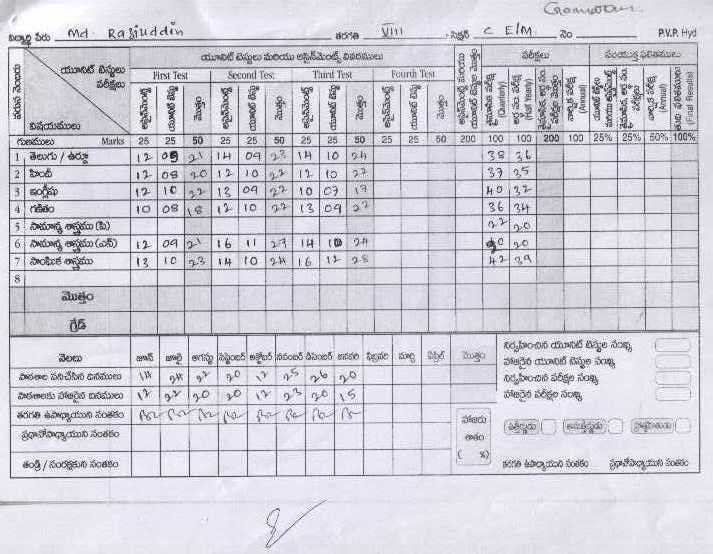 విద్యార్థి పేరు Md. Raziuddin తరగతి VIII సెక్షన్ C E/M నెం P.V.P. Hyd
వరుస నెంబరు యూనిట్ టెస్టులు పరీక్షలు విషయములు యూనిట్ టెస్టులు మరియు అసైన్‌మెంట్స్ వివరములు పరీక్షలు సంయుక్త ఫలితములు
First Test Second Test Third Test Fourth Test
అసైన్‌మెంట్ యూనిట్ టెస్టు మొత్తం అసైన్‌మెంట్ యూనిట్ టెస్టు మొత్తం అసైన్‌మెంట్ యూనిట్ టెస్టు మొత్తం అసైన్‌మెంట్ యూనిట్ టెస్టు మొత్తం (Quarterly) (Half Yearly) (Annual) (Annual) (Final Results)
గుణములు Marks 25 25 50 25 25 50 25 25 50 25 25 50 200 100 100 200 100 25% 25% 50% 100%
1 తెలుగు / ఉర్దూ 12 09 21 14 09 23 14 10 24 38 36
2 హిందీ 12 08 20 12 10 22 12 10 22 37 35
3 ఇంగ్లీషు 12 10 22 13 09 22 10 07 17 40 32
4 గణితం 10 08 18 12 10 22 13 09 22 36 34
5 సామాన్య శాస్త్రము (పి) 22 20
6 సామాన్య శాస్త్రము (ఎన్) 12 09 21 16 11 27 14 10 24 20 20
7 సాంఘిక శాస్త్రము 13 10 23 14 10 24 16 12 28 42 39
8
మొత్తం
గ్రేడ్
నెలలు జూన్ జూలై ఆగస్టు సెప్టెంబర్ అక్టోబర్ నవంబర్ డిసెంబర్ జనవరి ఫిబ్రవరి మార్చి ఏప్రిల్ మొత్తం
పాఠశాల పనిచేసిన దినములు 14 24 22 20 12 25 26 20
పాఠశాలకు హాజరైన దినములు 12 22 20 20 12 23 20 15
తరగతి ఉపాధ్యాయుని సంతకం
ప్రధానోపాధ్యాయుని సంతకం
తండ్రి / సంరక్షకుని సంతకం
హాజరు శాతం ( %)
నిర్వహించిన యూనిట్ టెస్టుల సంఖ్య
హాజరైన యూనిట్ టెస్టుల సంఖ్య
నిర్వహించిన పరీక్షల సంఖ్య
హాజరైన పరీక్షల సంఖ్య
ఉత్తీర్ణుడు అనుత్తీర్ణుడు
తరగతి ఉపాధ్యాయుని సంతకం ప్రధానోపాధ్యాయుని సంతకం